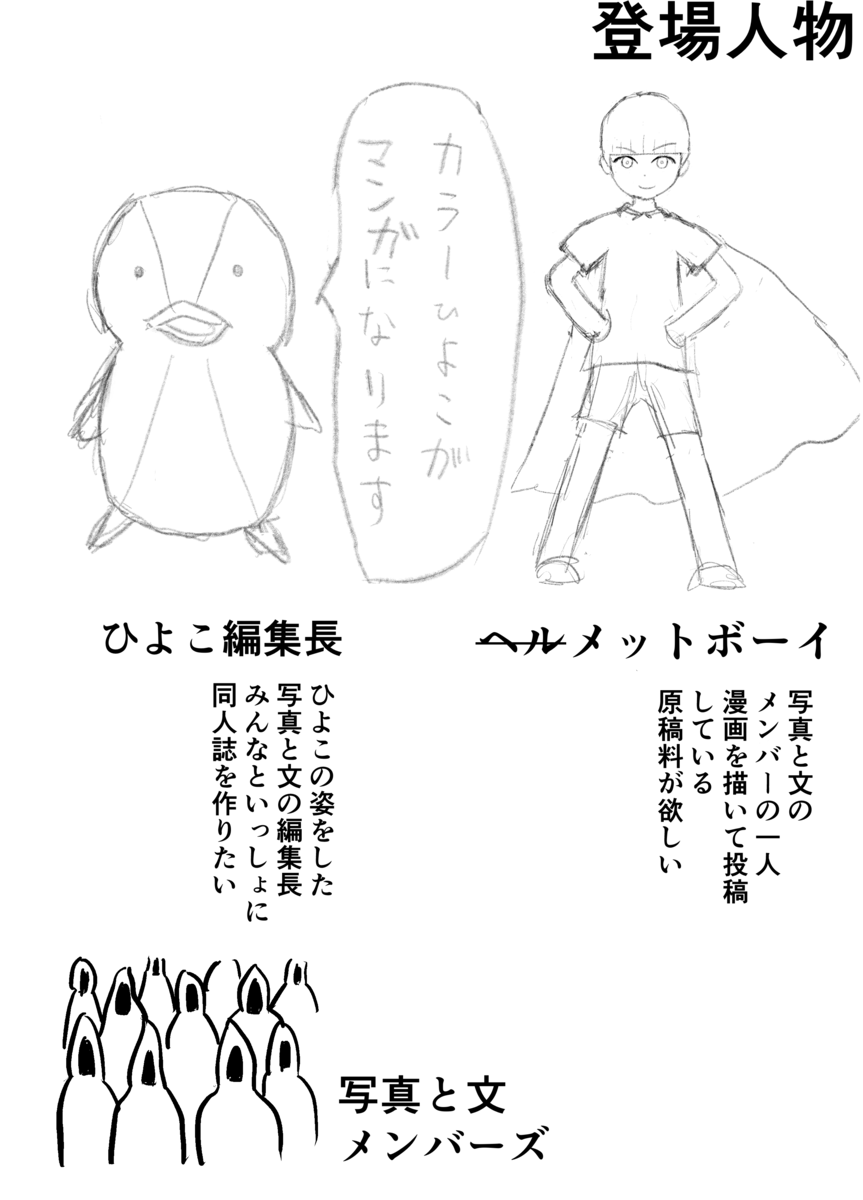 登場人物
カラーひよこが
マンガになります
ヘルメットボーイ
写真と文の
メンバーの一人
漫画を描いて投稿
している
原稿料が欲しい
ひよこ編集長
ひよこの姿をした
写真と文の編集長
みんなといっしょに
同人誌を作りたい
写真と文
メンバーズ